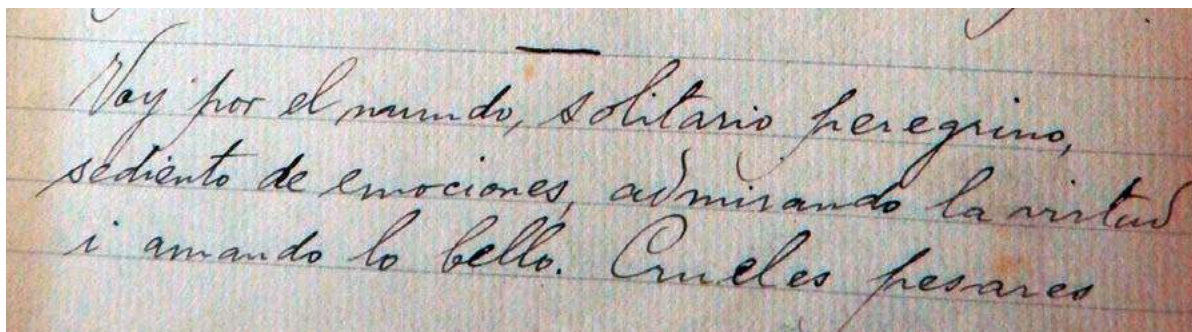 Voy por el mundo, solitario peregrino,
sediento de emociones, admirando la virtud
i amando lo bello. Crueles pesares